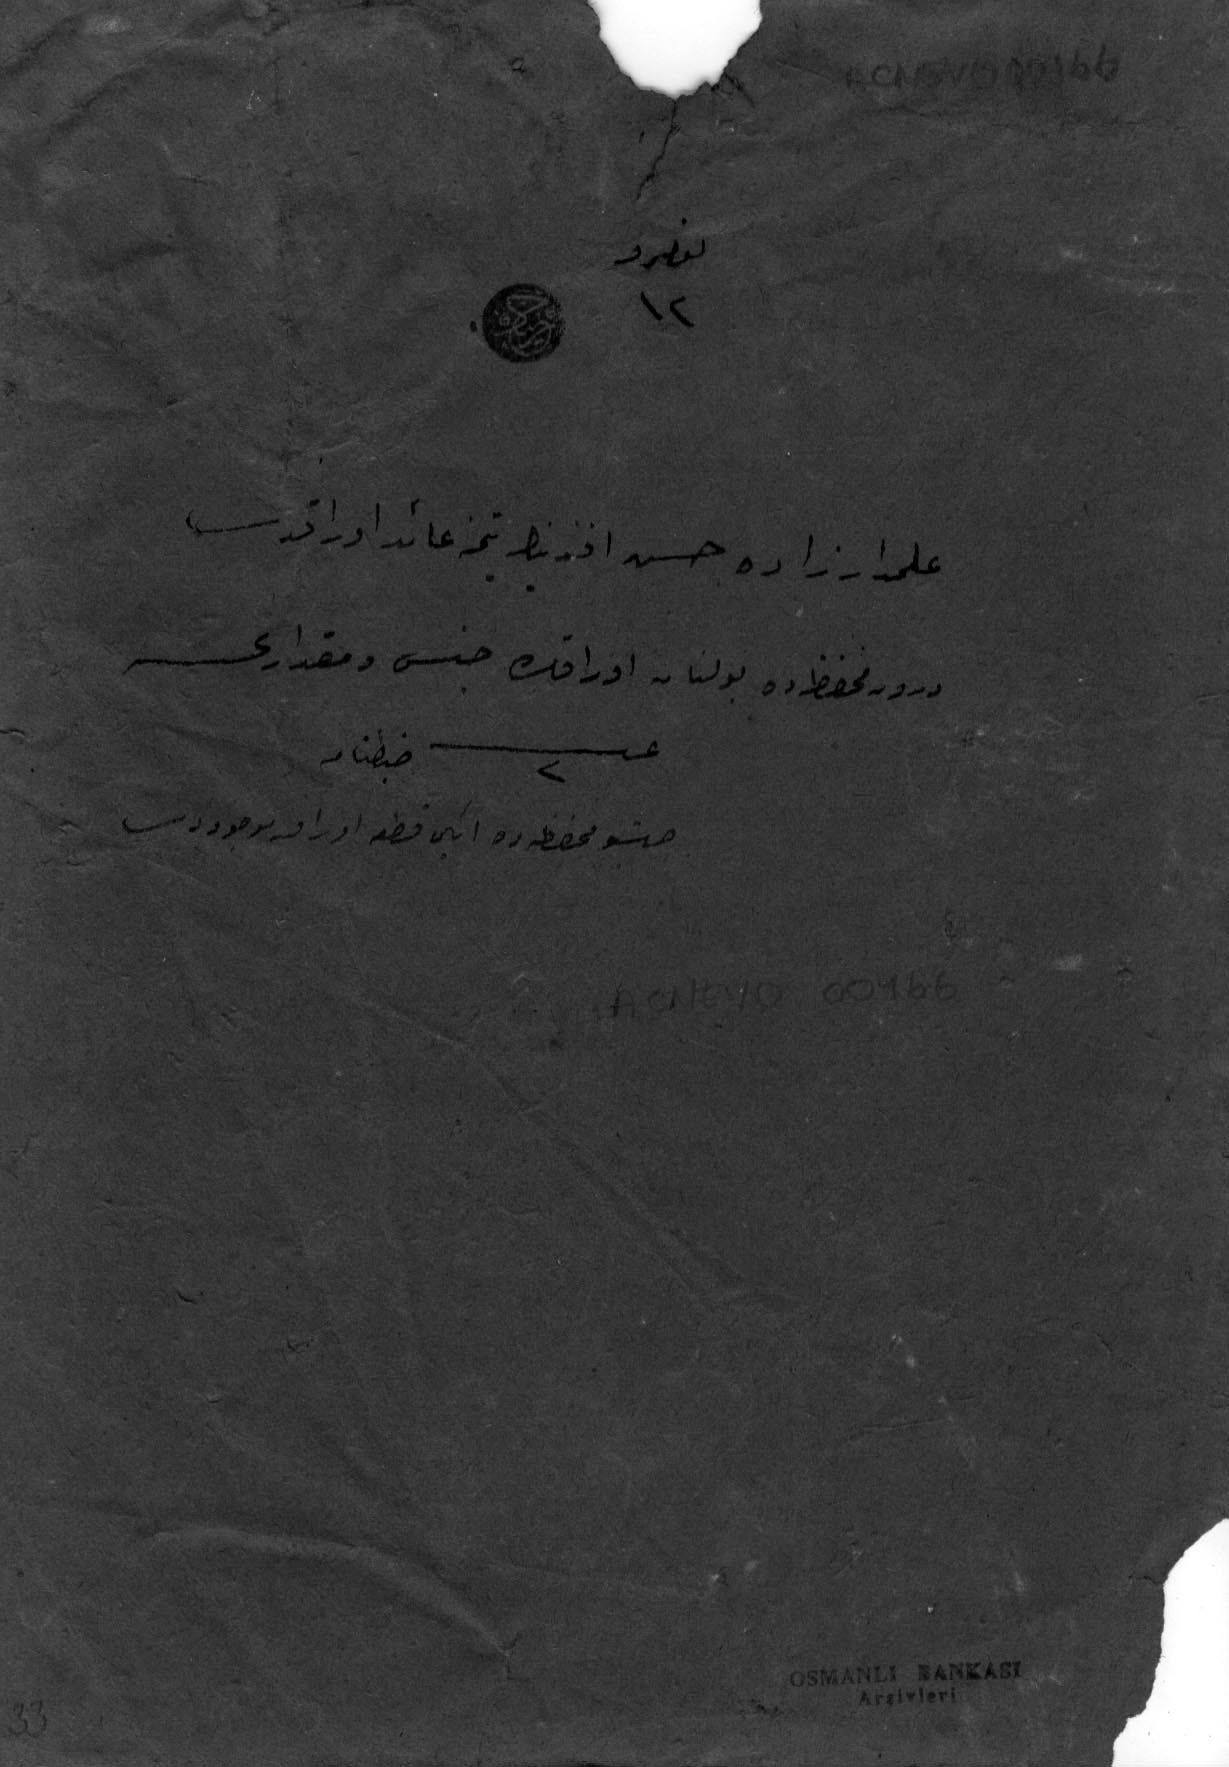 ACNEVD 00166
نومرو
١٢
علمدار زاده حسن افندینك عائد اوراقدر
درون محفظه ده بولنان اوراقك جنس و مقداری
عدد
٢ ضبطنامه
اشبو محفظه ده ایكی قطعه اوراق موجوددر
ACNEVD 00166
OSMANLI BANKASI
Arşivleri
33